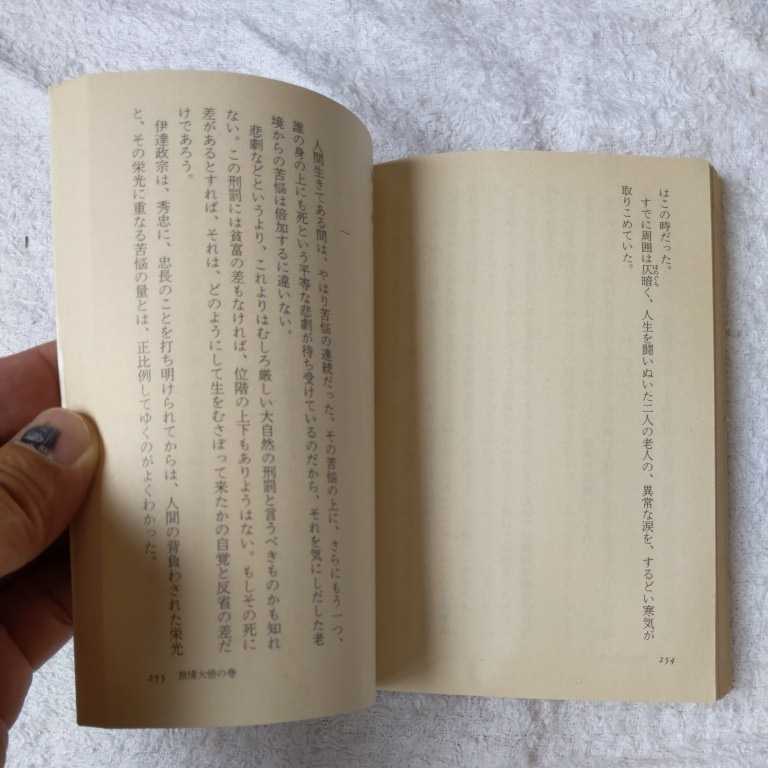 はこの時だった。
すでに周囲は仄暗く、人生を闘いぬいた二人の老人の、異常な涙を、するどい寒気が
取りこめていた。
254
人間生きてある間は、やはり苦悩の連続だった。その苦悩の上に、さらにもう一つ、
誰の身の上にも死という平等な悲劇が待ち受けているのだから、それを気にしだした老
境からの苦悩は倍加するに違いない。
悲劇などというより、これよりはむしろ厳しい大自然の刑罰と言うべきものかも知れ
ない。この刑罰には貧富の差もなければ、位階の上下もありようはない。もしその死に
差があるとすれば、それは、どのようにして生をむさぼって来たかの自覚と反省の差だ
けであろう。
伊達政宗は、秀忠に、忠長のことを打ち明けられてからは、人間の背負わされた栄光
と、その栄光に重なる苦悩の量とは、正比例してゆくのがよくわかった。
255 の巻